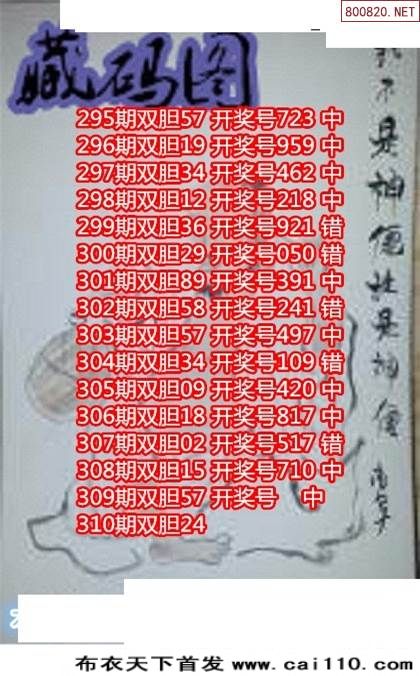 800820.NET
藏码图
295期双胆57 开奖号723 中
296期双胆19 开奖号959 中
297期双胆34 开奖号462 中
298期双胆12 开奖号218 中
299期双胆36 开奖号921 错
300期双胆29 开奖号050 错
301期双胆89 开奖号391 中
302期双胆58 开奖号241 错
303期双胆57 开奖号497 中
304期双胆34 开奖号109 错
305期双胆09 开奖号420 中
306期双胆18 开奖号817 中
307期双胆02 开奖号517 错
308期双胆15 开奖号710 中
309期双胆57 开奖号 中
310期双胆24
不是神便是神
布衣天下首发 www.cai110.com